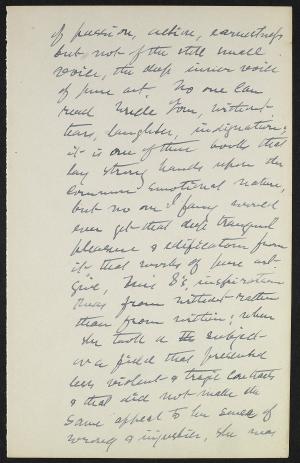 of passion, action, earnestness
but not of the still small
voice, the deep inner voice
of pure art. No one can
read Uncle Tom, without
tears, laughter, indignation;
it is one of those books that
lay strong hands upon the
common emotional nature,
but no one I fancy would
ever get that deep tranquil
pleasure & edification from
it that works of pure art
give, Mrs S's, inspiration
was from without rather
than from within; when
she took a subject
or a field that presented
less violent & tragic contrasts
& that did not make the
same appeal to her sense of
wrong & injustice, she was